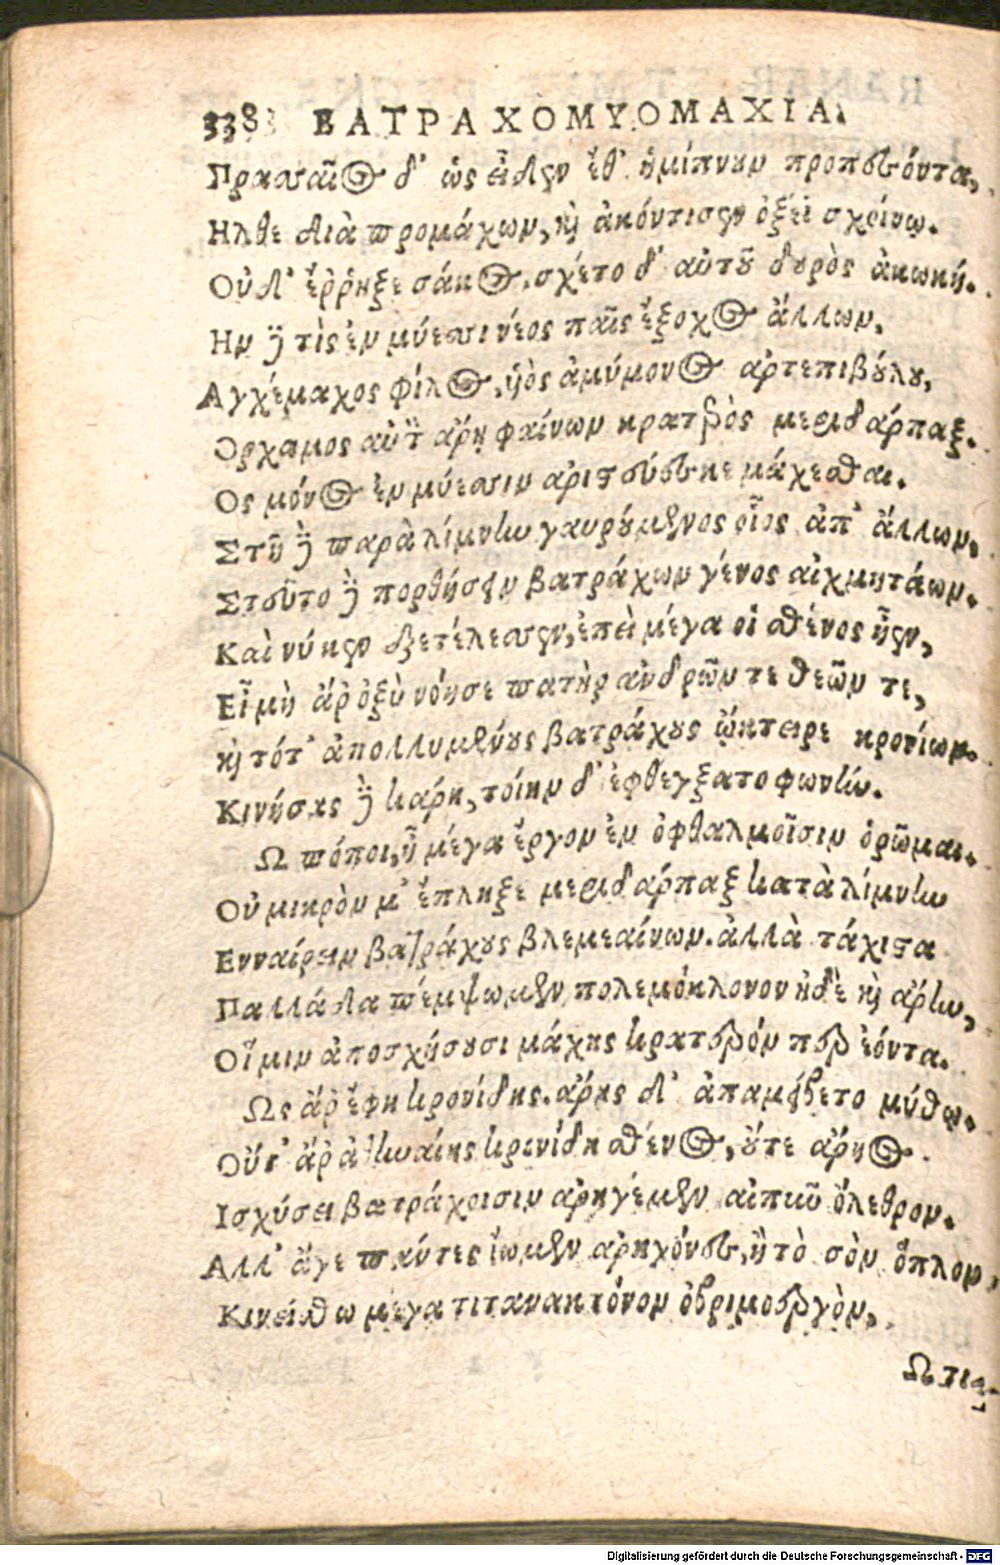 338 ΒΑΤΡΑΧΟΜΥΟΜΑΧΙΑ.
Πρασσαῖος δ' ὡς εἶδεν ἔθ' ἡμίπνουν προπεσόντα,
Ηλθε διὰ προμάχων, καὶ ἀκόντισεν ὀξέϊ σχοίνῳ.
Οὐδ' ἔῤῥηξε σάκος, σχέτο δ' αὐτοῦ δουρὸς ἀκωκή.
Ην δέ τὶς ἐν μύεσσι νέος παῖς ἔξοχος ἄλλων,
Αγχέμαχος φίλος, ὑὸς ἀμύμονος ἀρτεπιβούλου,
Ορχαμος αὐτὸν ἄρη φαίνων κρατερὸς μεριδάρπαξ.
Ος μόνος ἐν μύεσσιν ἀριστεύεσκε μάχεσθαι.
Στῆ δὲ παρὰ λίμνην γαυρούμενος οἶος ἀπ' ἄλλων,
Στεῦτο δὲ πορθήσειν βατράχων γένος αἰχμητάων.
Καὶ νύ κεν ἐξετέλεσσεν, ἐπεὶ μέγα οἱ σθένος ἦεν,
Εἶ μὴ ἄρ ὀξὺ νόησε πατὴρ ἀνδρῶν τε θεῶν τε,
καὶ τότ' ἀπολλυμένους βατράχους ᾤκτειρε κρονίων.
Κινήσας δὲ κάρη, τοίην δ' ἐφθέγξατο φωνήν.
Ω πόποι, ἦ μέγα ἔργον ἐν ὀφθαλμοῖσιν ὁρῶμαι.
Οὐ μικρὸν μ' ἔπληξε μεριδάρπαξ κατὰ λίμνην
Ενναίρειν βατράχους βλεμεαίνων. ἀλλὰ τάχιστα
Παλλάδα πέμψωμεν πολεμόκλονον ἠδὲ καὶ ἄρην,
Οἵ μιν ἀποσχήσουσι μάχης κρατερόν περ ἐόντα.
Ως ἄρ ἔφη κρονίδης. ἄρης δ' ἀπαμείβετο μύθῳ.
Οὔτ' ἄρ ἀθηναίης κρονίδη σθένος, οὔτε ἄρηος
Ισχύσει βατράχοισιν ἀρηγέμεν αἰπὺν ὄλεθρον.
Αλλ' ἄγε πάντες ἴωμεν ἀρηγόνες, ἢ τὸ σὸν ὅπλον,
Κινείσθω μέγα τιτανοκτόνον ὀβριμοεργὸν,
Ως τιτα-
Digitalisierung gefördert durch die Deutsche Forschungsgemeinschaft - DFG